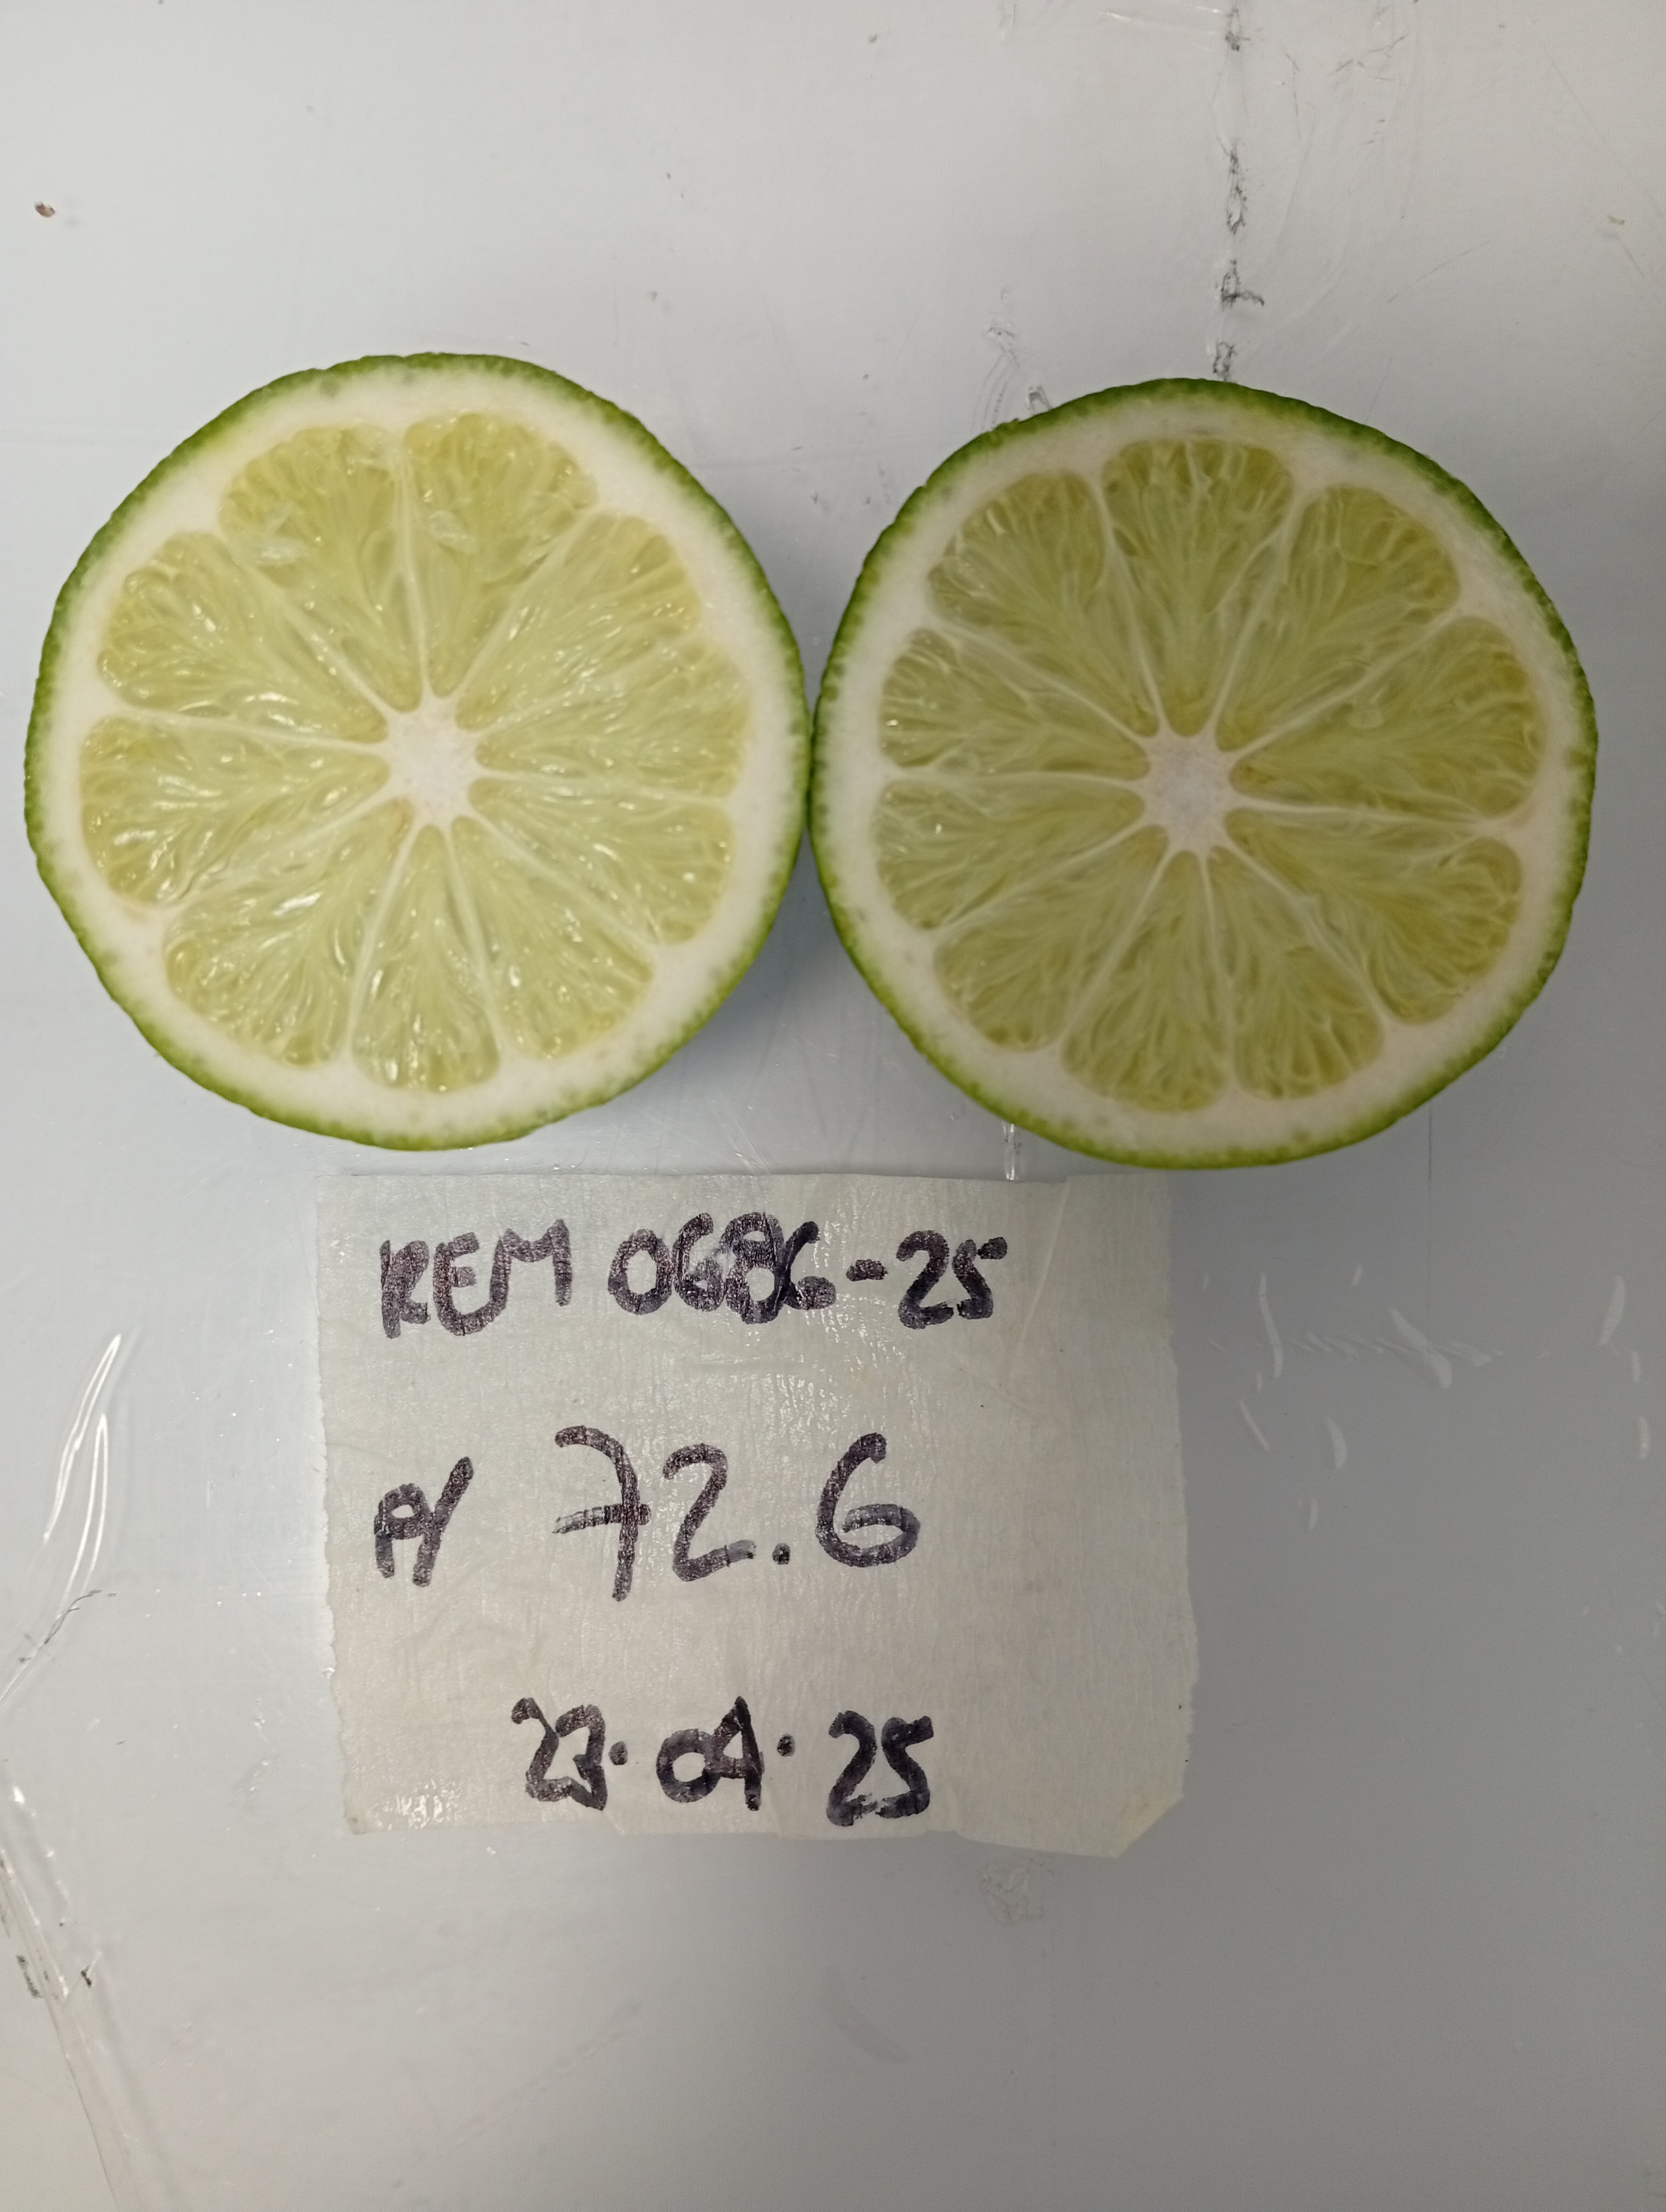 REM 0686-25
P/ 72.6
23.04.25